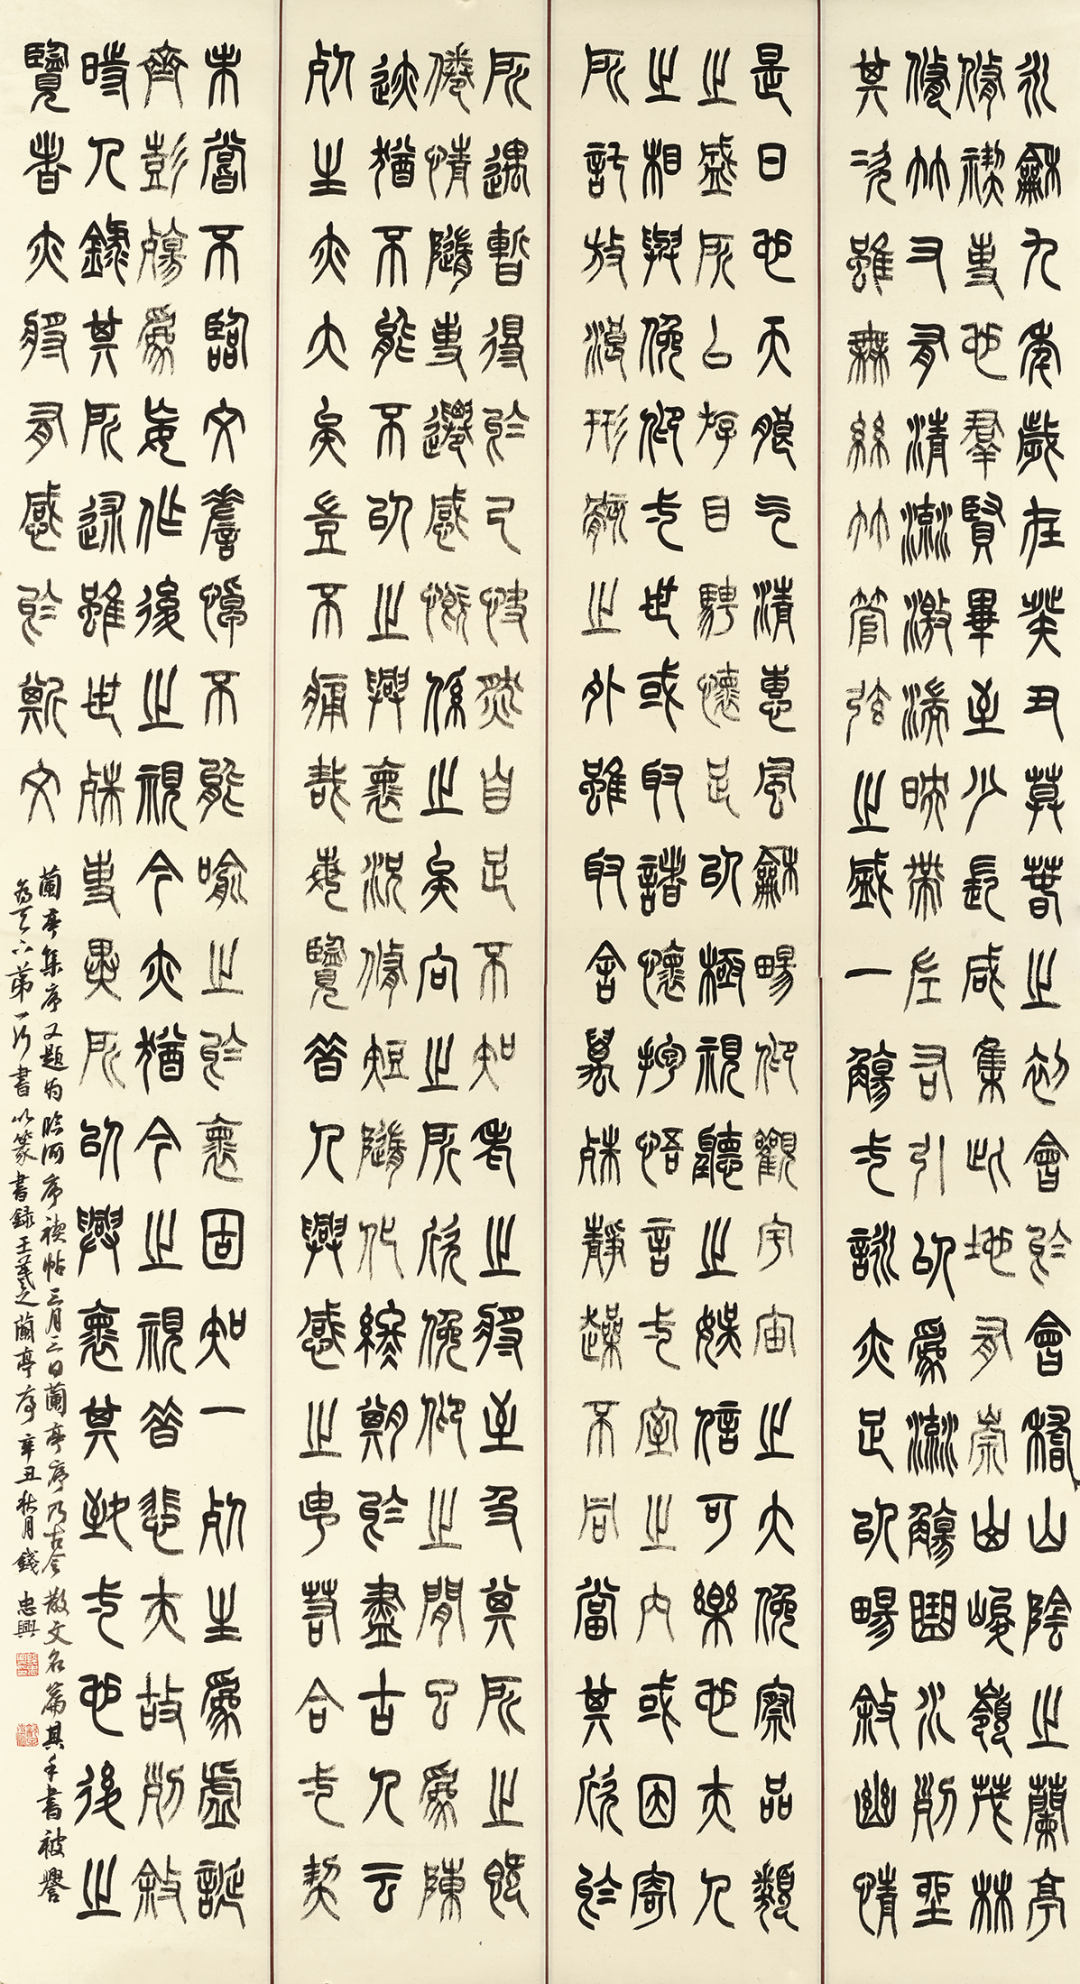 永龢九年歲在癸丑莫春之初會於會稽山陰之蘭亭
脩禊事也羣賢畢至少長咸集此地有崇山峻嶺茂林
脩竹又有清流激湍映帶左右引以為流觴曲水列坐
其次雖無絲竹管弦之盛一觴弌詠亦足以暢敘幽情
是日也天朗气清惠風龢暢仰觀宇宙之大俛察品類
之盛所以游目騁懷足以極視聽之娛信可樂也夫人
之相與俛仰弌世或取諸懷抱悟言弌室之内或因寄
所託放浪形骸之外雖取舍萬殊靜躁不同當其欣於
所遇暫得於己快然自足不知老之將至及其所之既
倦情隨事遷感慨係之矣向之所欣俛仰之閒已為陳
迹猶不能不以之興懷況脩短隨化終期於盡古人云
死生亦大矣豈不痛哉每覽昔人興感之由若合弌契
未嘗不臨文嗟悼不能喻之於懷固知一死生為虛誕
齊彭殤為妄作後之視今亦猶今之視昔悲夫故列敘
時人錄其所述雖世殊事異所以興懷其致弌也後之
覽者亦將有感於斯文
蘭亭集序又題為臨河序禊帖三月三日蘭亭序乃古今散文名篇其手書被譽
為天下第一行書以篆書錄王羲之蘭亭序辛丑秋月錢忠興